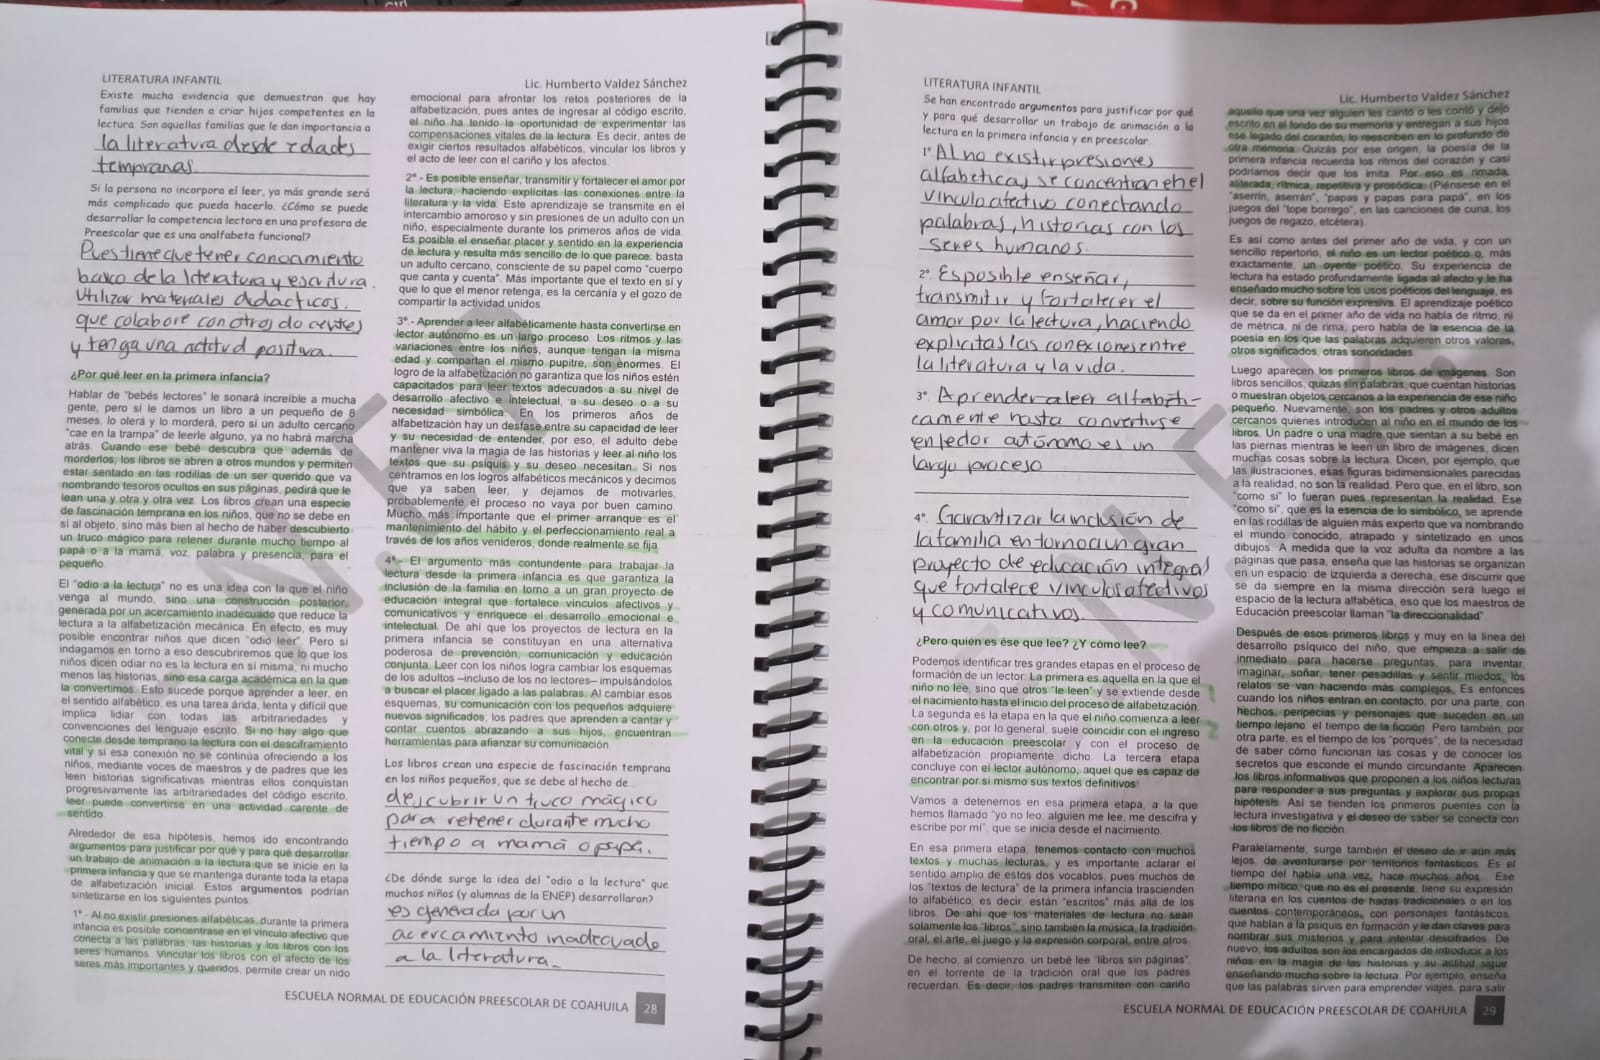 LITERATURA INFANTIL
Lic. Humberto Valdez Sánchez
Existe mucha evidencia que demuestran que hay
familias que tienden a criar hijos competentes en la
lectura. Son aquellas familias que le dan importancia a
la literatura desde edades
tempranas.
Si la persona no incorpora el leer, ya más grande será
más complicado que pueda hacerlo. ¿Cómo se puede
desarrollar la competencia lectora en una profesora de
Preescolar que es una analfabeta funcional?
Pues tiene que tener conocimiento
basico de la literatura y escritura.
Utilizar materiales didacticos.
que colabore con otros docentes
y tenga una actitud positiva.
¿Por qué leer en la primera infancia?
Hablar de "bebés lectores" le sonará increíble a mucha
gente, pero si le damos un libro a un pequeño de 8
meses, lo olerá y lo morderá, pero si un adulto cercano
"cae en la trampa" de leerle alguno, ya no habrá marcha
atrás. Cuando ese bebé descubra que además de
morderlos, los libros se abren a otros mundos y permiten
estar sentado en las rodillas de un ser querido que va
nombrando tesoros ocultos en sus páginas, pedirá que le
lean una y otra y otra vez. Los libros crean una especie
de fascinación temprana en los niños, que no se debe en
sí al objeto, sino más bien al hecho de haber descubierto
un truco mágico para retener durante mucho tiempo al
papá o a la mamá, voz, palabra y presencia, para el
pequeño
El "odio a la lectura" no es una idea con la que el niño
venga al mundo, sino una construcción posterior,
generada por un acercamiento inadecuado que reduce la
lectura a la alfabetización mecánica. En efecto, es muy
posible encontrar niños que dicen "odio leer". Pero si
indagamos en torno a eso descubriremos que lo que los
niños dicen odiar no es la lectura en sí misma, ni mucho
menos las historias, sino esa carga académica en la que
la convertimos. Esto sucede porque aprender a leer, en
el sentido alfabético, es una tarea árida, lenta y difícil que
implica lidiar con todas las arbitrariedades y
convenciones del lenguaje escrito. Si no hay algo que
conecte desde temprano la lectura con el desciframiento
vital y si esa conexión no se continúa ofreciendo a los
niños, mediante voces de maestros y de padres que les
leen historias significativas mientras ellos conquistan
progresivamente las arbitrariedades del código escrito,
leer puede convertirse en una actividad carente de
sentido
Alrededor de esa hipótesis, hemos ido encontrando
argumentos para justificar por qué y para qué desarrollar
un trabajo de animación a la lectura que se inicie en la
primera infancia y que se mantenga durante toda la etapa
de alfabetización inicial. Estos argumentos podrían
sintetizarse en los siguientes puntos:
1º.- Al no existir presiones alfabéticas, durante la primera
infancia es posible concentrase en el vínculo afectivo que
conecta a las palabras, las historias y los libros con los
seres humanos. Vincular los libros con el afecto de los
seres más importantes y queridos, permite crear un nido
emocional para afrontar los retos posteriores de la
alfabetización, pues antes de ingresar al código escrito,
el niño ha tenido la oportunidad de experimentar las
compensaciones vitales de la lectura. Es decir, antes de
exigir ciertos resultados alfabéticos, vincular los libros y
el acto de leer con el cariño y los afectos.
2º.- Es posible enseñar, transmitir y fortalecer el amor por
la lectura, haciendo explícitas las conexiones entre la
literatura y la vida. Este aprendizaje se transmite en el
intercambio amoroso y sin presiones de un adulto con un
niño, especialmente durante los primeros años de vida.
Es posible el enseñar placer y sentido en la experiencia
de lectura y resulta más sencillo de lo que parece: basta
un adulto cercano, consciente de su papel como "cuerpo
que canta y cuenta". Más importante que el texto en sí y
que lo que el menor retenga, es la cercanía y el gozo de
compartir la actividad unidos.
3º.- Aprender a leer alfabéticamente hasta convertirse en
lector autónomo es un largo proceso. Los ritmos y las
variaciones entre los niños, aunque tengan la misma
edad y compartan el mismo pupitre, son enormes. El
logro de la alfabetización no garantiza que los niños estén
capacitados para leer textos adecuados a su nivel de
desarrollo afectivo e intelectual, a su deseo o a su
necesidad simbólica. En los primeros años de
alfabetización hay un desfase entre su capacidad de leer
y su necesidad de entender, por eso, el adulto debe
mantener viva la magia de las historias y leer al niño los
textos que su psiquis y su deseo necesitan. Si nos
centramos en los logros alfabéticos mecánicos y decimos
que ya saben leer, y dejamos de motivarles,
probablemente el proceso no vaya por buen camino.
Mucho más importante que el primer arranque es el
mantenimiento del hábito y el perfeccionamiento real a
través de los años venideros, donde realmente se fija
4º.- El argumento más contundente para trabajar la
lectura desde la primera infancia es que garantiza la
inclusión de la familia en torno a un gran proyecto de
educación integral que fortalece vínculos afectivos y
comunicativos y enriquece el desarrollo emocional e
intelectual. De ahí que los proyectos de lectura en la
primera infancia se constituyan en una alternativa
poderosa de prevención, comunicación y educación
conjunta. Leer con los niños logra cambiar los esquemas
de los adultos –incluso de los no lectores– impulsándolos
a buscar el placer ligado a las palabras. Al cambiar esos
esquemas, su comunicación con los pequeños adquiere
nuevos significados, los padres que aprenden a cantar y
contar cuentos abrazando a sus hijos, encuentran
herramientas para afianzar su comunicación
Los libros crean una especie de fascinación temprana
en los niños pequeños, que se debe al hecho de
descubrir un truco mágico
para retener durante mucho
tiempo a mamá o papá.
¿De dónde surge la idea del "odio a la lectura" que
muchos niños (y alumnas de la ENEP) desarrollaron?
es generada por un
acercamiento inadecuado
a la literatura.
ESCUELA NORMAL DE EDUCACIÓN PREESCOLAR DE COAHUILA 28
LITERATURA INFANTIL
Lic. Humberto Valdez Sánchez
Se han encontrado argumentos para justificar por qué
y para qué desarrollar un trabajo de animación a la
lectura en la primera infancia y en preescolar.
1º. Al no existir presiones
alfabeticas, se concentran en el
vinculo afectivo conectando
palabras, historias con los
seres humanos.
2º. Es posible enseñar,
transmitir y fortalecer el
amor por la lectura, haciendo
explicitas las conexiones entre
la literatura y la vida.
3º. Aprender a leer alfabeti-
camente hasta convertirse
en lector autónomo es un
largo proceso
4º. Garantizar la inclusión de
la familia en torno a un gran
proyecto de educación integral
que fortalece vinculos afectivos
y comunicativos.
¿Pero quién es ése que lee? ¿Y cómo lee?
Podemos identificar tres grandes etapas en el proceso de
formación de un lector. La primera es aquella en la que el
niño no lee, sino que otros "le leen" y se extiende desde
el nacimiento hasta el inicio del proceso de alfabetización.
La segunda es la etapa en la que el niño comienza a leer
con otros y, por lo general, suele coincidir con el ingreso
en la educación preescolar y con el proceso de
alfabetización propiamente dicho. La tercera etapa
concluye con el lector autónomo, aquel que es capaz de
encontrar por sí mismo sus textos definitivos
Vamos a detenernos en esa primera etapa, a la que
hemos llamado "yo no leo, alguien me lee, me descifra y
escribe por mí", que se inicia desde el nacimiento.
En esa primera etapa, tenemos contacto con muchos
textos y muchas lecturas, y es importante aclarar el
sentido amplio de estos dos vocablos, pues muchos de
los "textos de lectura" de la primera infancia trascienden
lo alfabético, es decir, están "escritos" más allá de los
libros. De ahí que los materiales de lectura no sean
solamente los "libros", sino también la música, la tradición
oral, el arte, el juego y la expresión corporal, entre otros.
De hecho, al comienzo, un bebé lee "libros sin páginas",
en el torrente de la tradición oral que los padres
recuerdan. Es decir, los padres transmiten con cariño
aquello que una vez alguien les cantó o les contó y dejó
escrito en el fondo de su memoria y entregan a sus hijos
ese legado del corazón, lo reescriben en lo profundo de
otra memoria. Quizás por ese origen, la poesía de la
primera infancia recuerda los ritmos del corazón y casi
podríamos decir que los imita. Por eso es rimada,
aliterada, rítmica, repetitiva y prosódica. (Piénsese en el
"aserrín, aserrán", "papas y papas para papá", en los
juegos del "tope borrego", en las canciones de cuna, los
juegos de regazo, etcétera).
Es así como antes del primer año de vida, y con un
sencillo repertorio, el niño es un lector poético o, más
exactamente, un oyente poético. Su experiencia de
lectura ha estado profundamente ligada al afecto y le ha
enseñado mucho sobre los usos poéticos del lenguaje, es
decir, sobre su función expresiva. El aprendizaje poético
que se da en el primer año de vida no habla de ritmo, ni
de métrica, ni de rima, pero habla de la esencia de la
poesía en los que las palabras adquieren otros valores,
otros significados, otras sonoridades
Luego aparecen los primeros libros de imágenes. Son
libros sencillos, quizás sin palabras, que cuentan historias
o muestran objetos cercanos a la experiencia de ese niño
pequeño. Nuevamente, son los padres y otros adultos
cercanos quienes introducen al niño en el mundo de los
libros. Un padre o una madre que sientan a su bebé en
las piernas mientras le leen un libro de imágenes, dicen
muchas cosas sobre la lectura. Dicen, por ejemplo, que
las ilustraciones, esas figuras bidimensionales parecidas
a la realidad, no son la realidad. Pero que, en el libro, son
"como si" lo fueran pues representan la realidad. Ese
"como si", que es la esencia de lo simbólico, se aprende
en las rodillas de alguien más experto que va nombrando
el mundo conocido, atrapado y sintetizado en unos
dibujos. A medida que la voz adulta da nombre a las
páginas que pasa, enseña que las historias se organizan
en un espacio: de izquierda a derecha, ese discurrir que
se da siempre en la misma dirección será luego el
espacio de la lectura alfabética, eso que los maestros de
Educación preescolar llaman "la direccionalidad".
Después de esos primeros libros y muy en la línea del
desarrollo psíquico del niño, que empieza a salir de
inmediato para hacerse preguntas, para inventar,
imaginar, soñar, tener pesadillas y sentir miedos, los
relatos se van haciendo más complejos. Es entonces
cuando los niños entran en contacto, por una parte, con
hechos, peripecias y personajes que suceden en un
tiempo lejano: el tiempo de la ficción. Pero también, por
otra parte, es el tiempo de los "porqués", de la necesidad
de saber cómo funcionan las cosas y de conocer los
secretos que esconde el mundo circundante. Aparecen
los libros informativos que proponen a los niños lecturas
para responder a sus preguntas y explorar sus propias
hipótesis. Así se tienden los primeros puentes con la
lectura investigativa y el deseo de saber se conecta con
los libros de no ficción.
Paralelamente, surge también el deseo de ir aún más
lejos, de aventurarse por territorios fantásticos. Es el
tiempo del había una vez, hace muchos años. Ese
tiempo mítico, que no es el presente, tiene su expresión
literaria en los cuentos de hadas tradicionales o en los
cuentos contemporáneos, con personajes fantásticos,
que hablan a la psiquis en formación y le dan claves para
nombrar sus misterios y para intentar descifrarlos. De
nuevo, los adultos son los encargados de introducir a los
niños en la magia de las historias y su actitud sigue
enseñando mucho sobre la lectura. Por ejemplo, enseña
que las palabras sirven para emprender viajes, para salir
ESCUELA NORMAL DE EDUCACIÓN PREESCOLAR DE COAHUILA 29